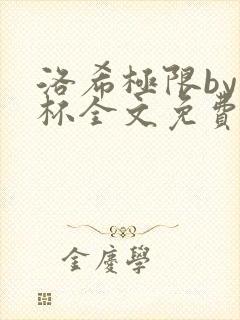 洛希極限by
杯全文免費
金慶學